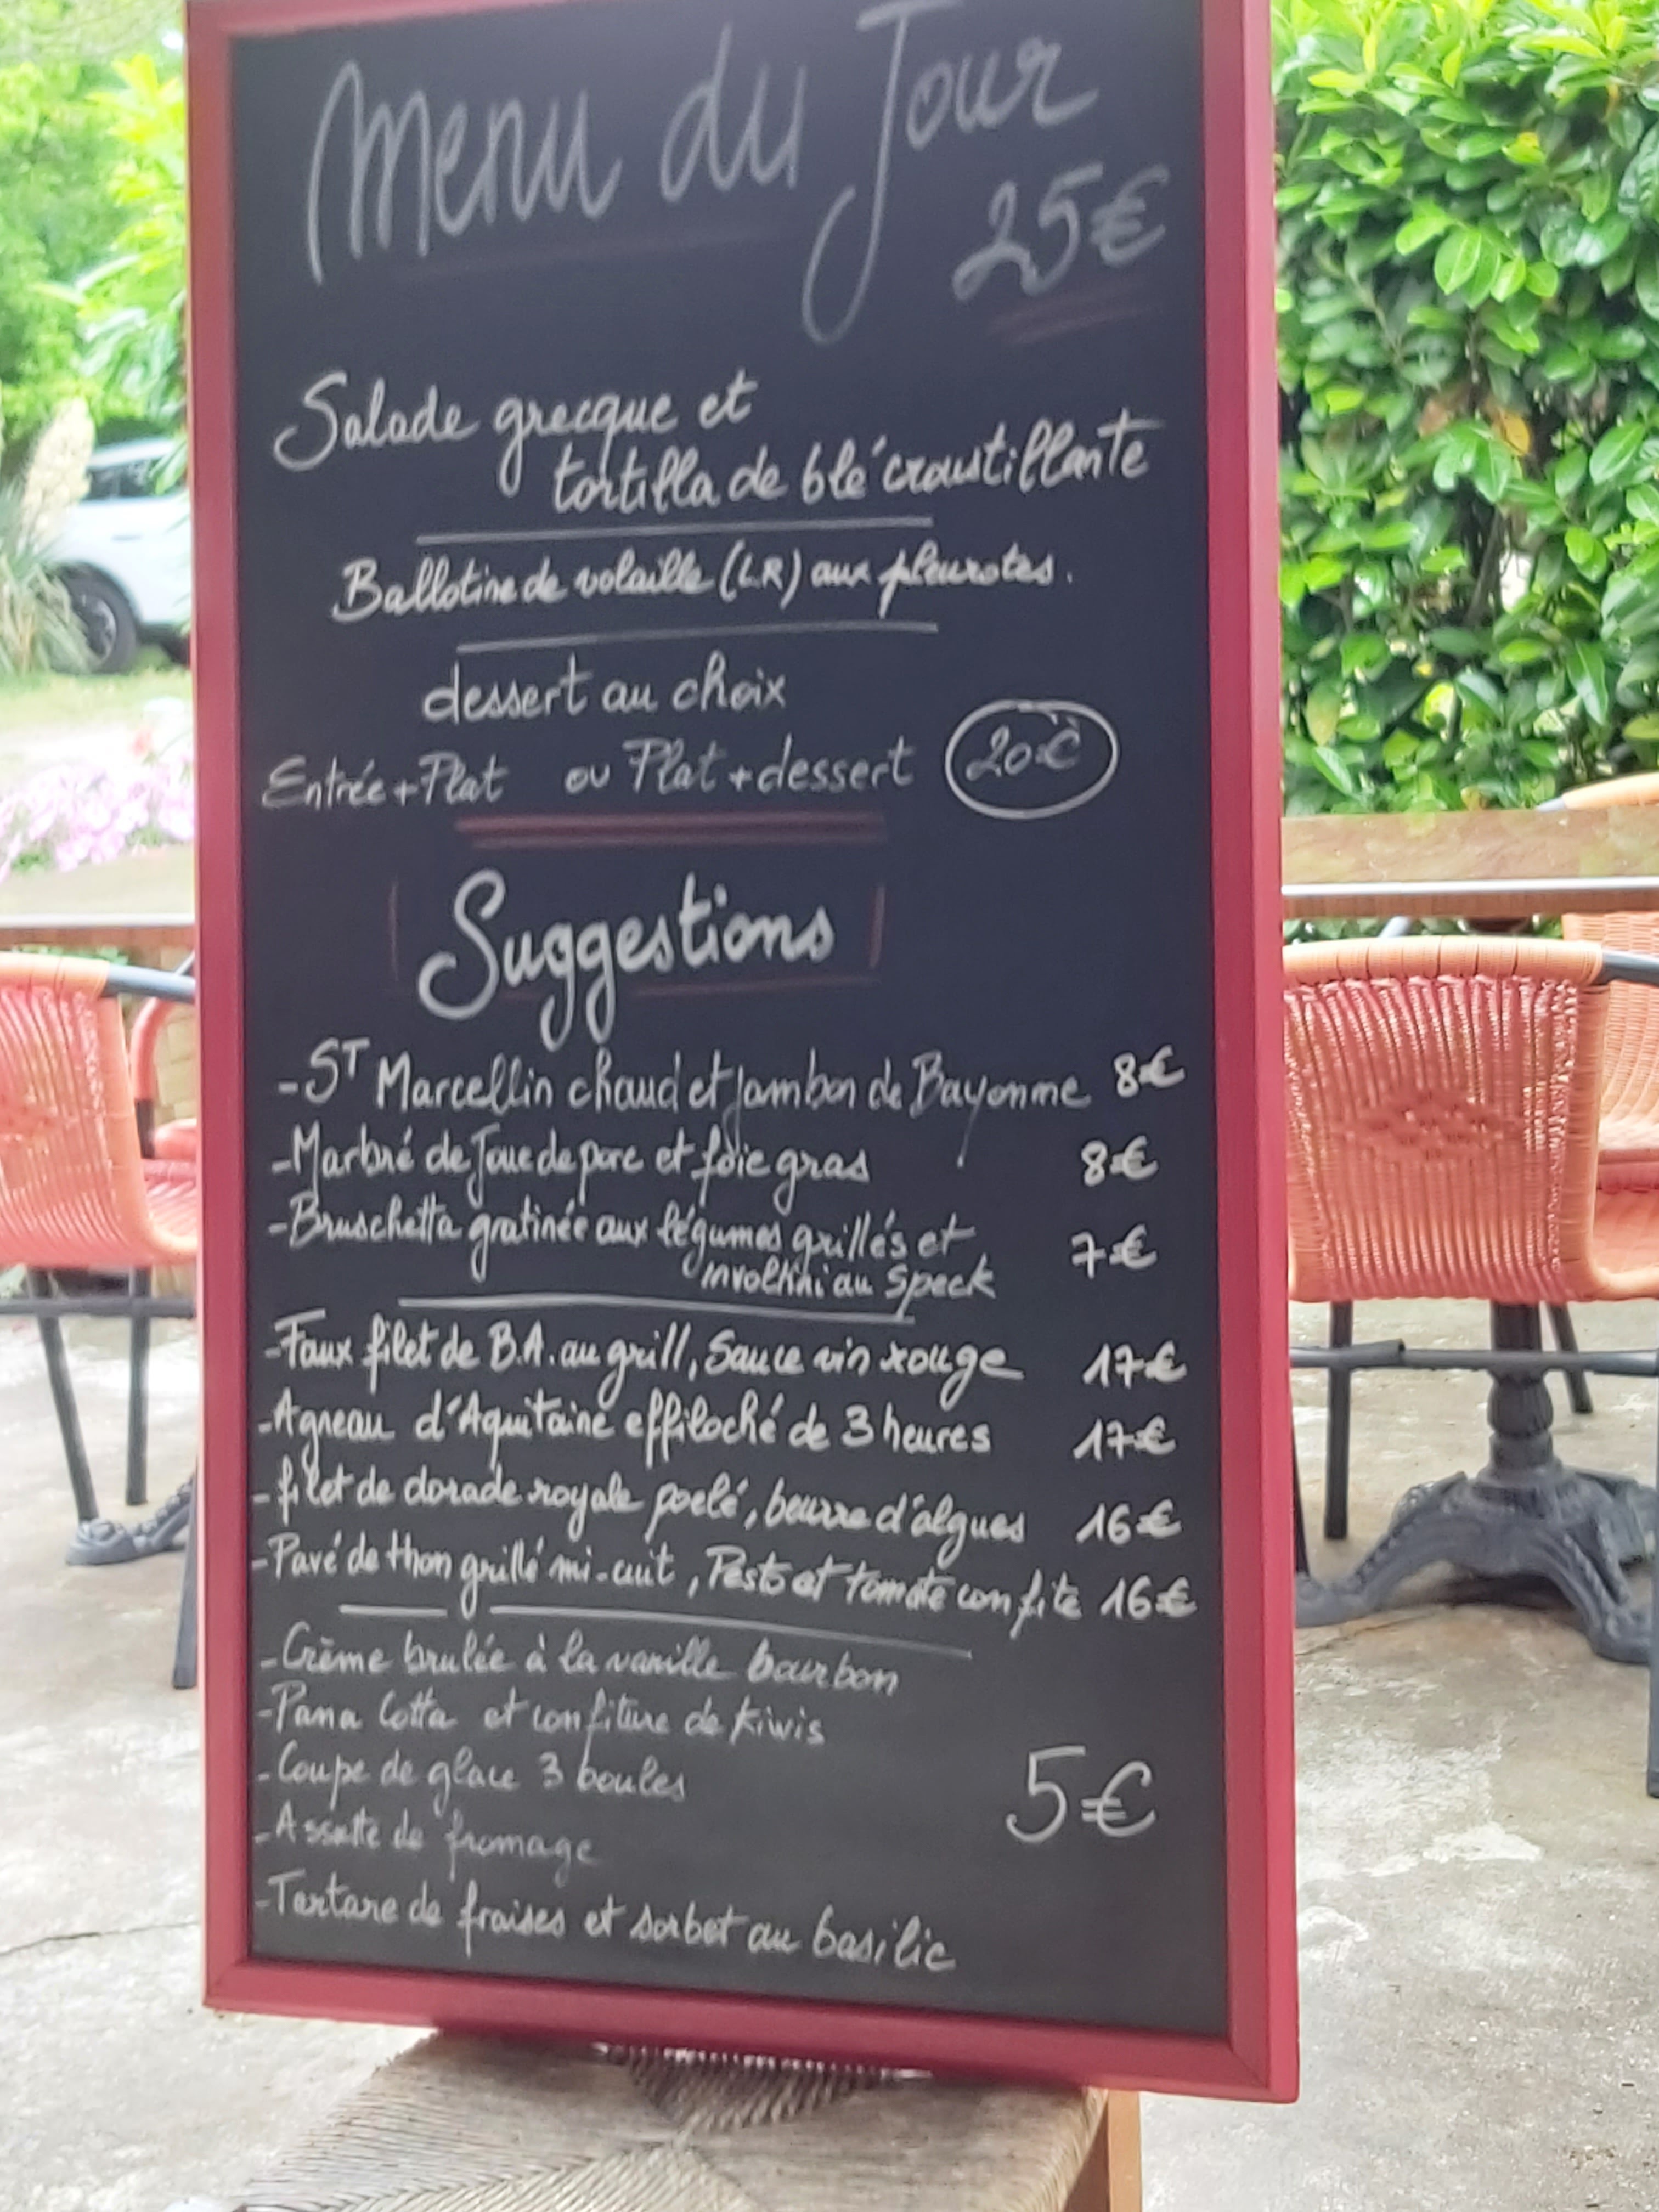 Menu du Jour
25€
Salade grecque et
tortilla de blé croustillante
Ballotine de volaille (LR) aux pleurotes.
dessert au choix
Entrée+Plat ou Plat+dessert 20€
Suggestions
-ST Marcellin chaud et jambon de Bayonne 8€
-Marbré de Joue de porc et foie gras 8€
-Bruschetta gratinée aux légumes grillés et
involtini au Speck 7€
-Faux filet de B.A. au grill, Sauce vin rouge 17€
-Agneau d'Aquitaine effiloché de 3 heures 17€
-filet de dorade royale poelé, beurre d'algues 16€
-Pavé de thon grillé mi-cuit, Pesto et tomate confite 16€
-Crème brulée à la vanille bourbon
-Pana Cotta et confiture de kiwis
-Coupe de glace 3 boules
5€
-Assiette de fromage
-Tartare de fraises et sorbet au basilic